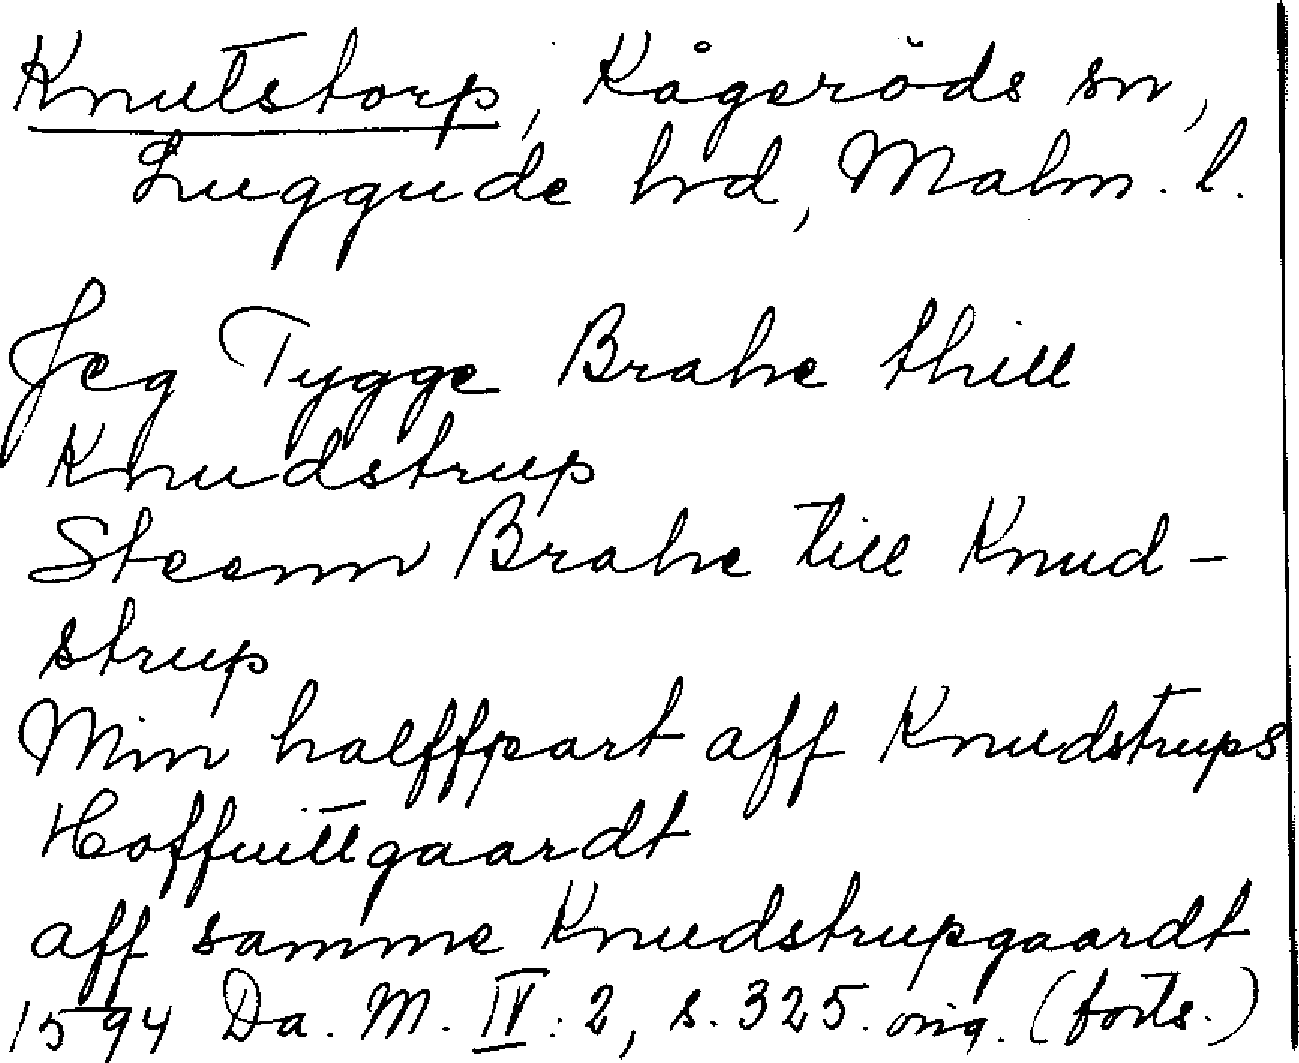 Knutstorp, Kågeröds sn,
Luggude hrd, Malm. l.
Jeg Tygge Brahe thill
Knudstrup
Steenn Brahe till Knud-
strup
Min halffpart aff Knudstrups
Hoffuittgaardt
aff samme Knudstrupgaardt
1594 Da. M. IV: 2, s. 325. orig. (forts.)